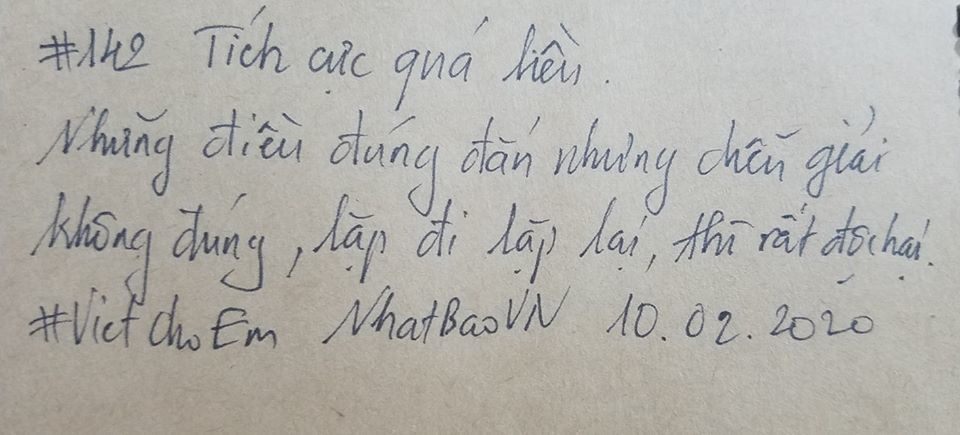 #142 Tích cực quá liều.
Những điều đúng đắn nhưng diễn giải
không đúng, lặp đi lặp lại, thì rất độc hại.
#VietchoEm NhatBaoVN 10.02.2020